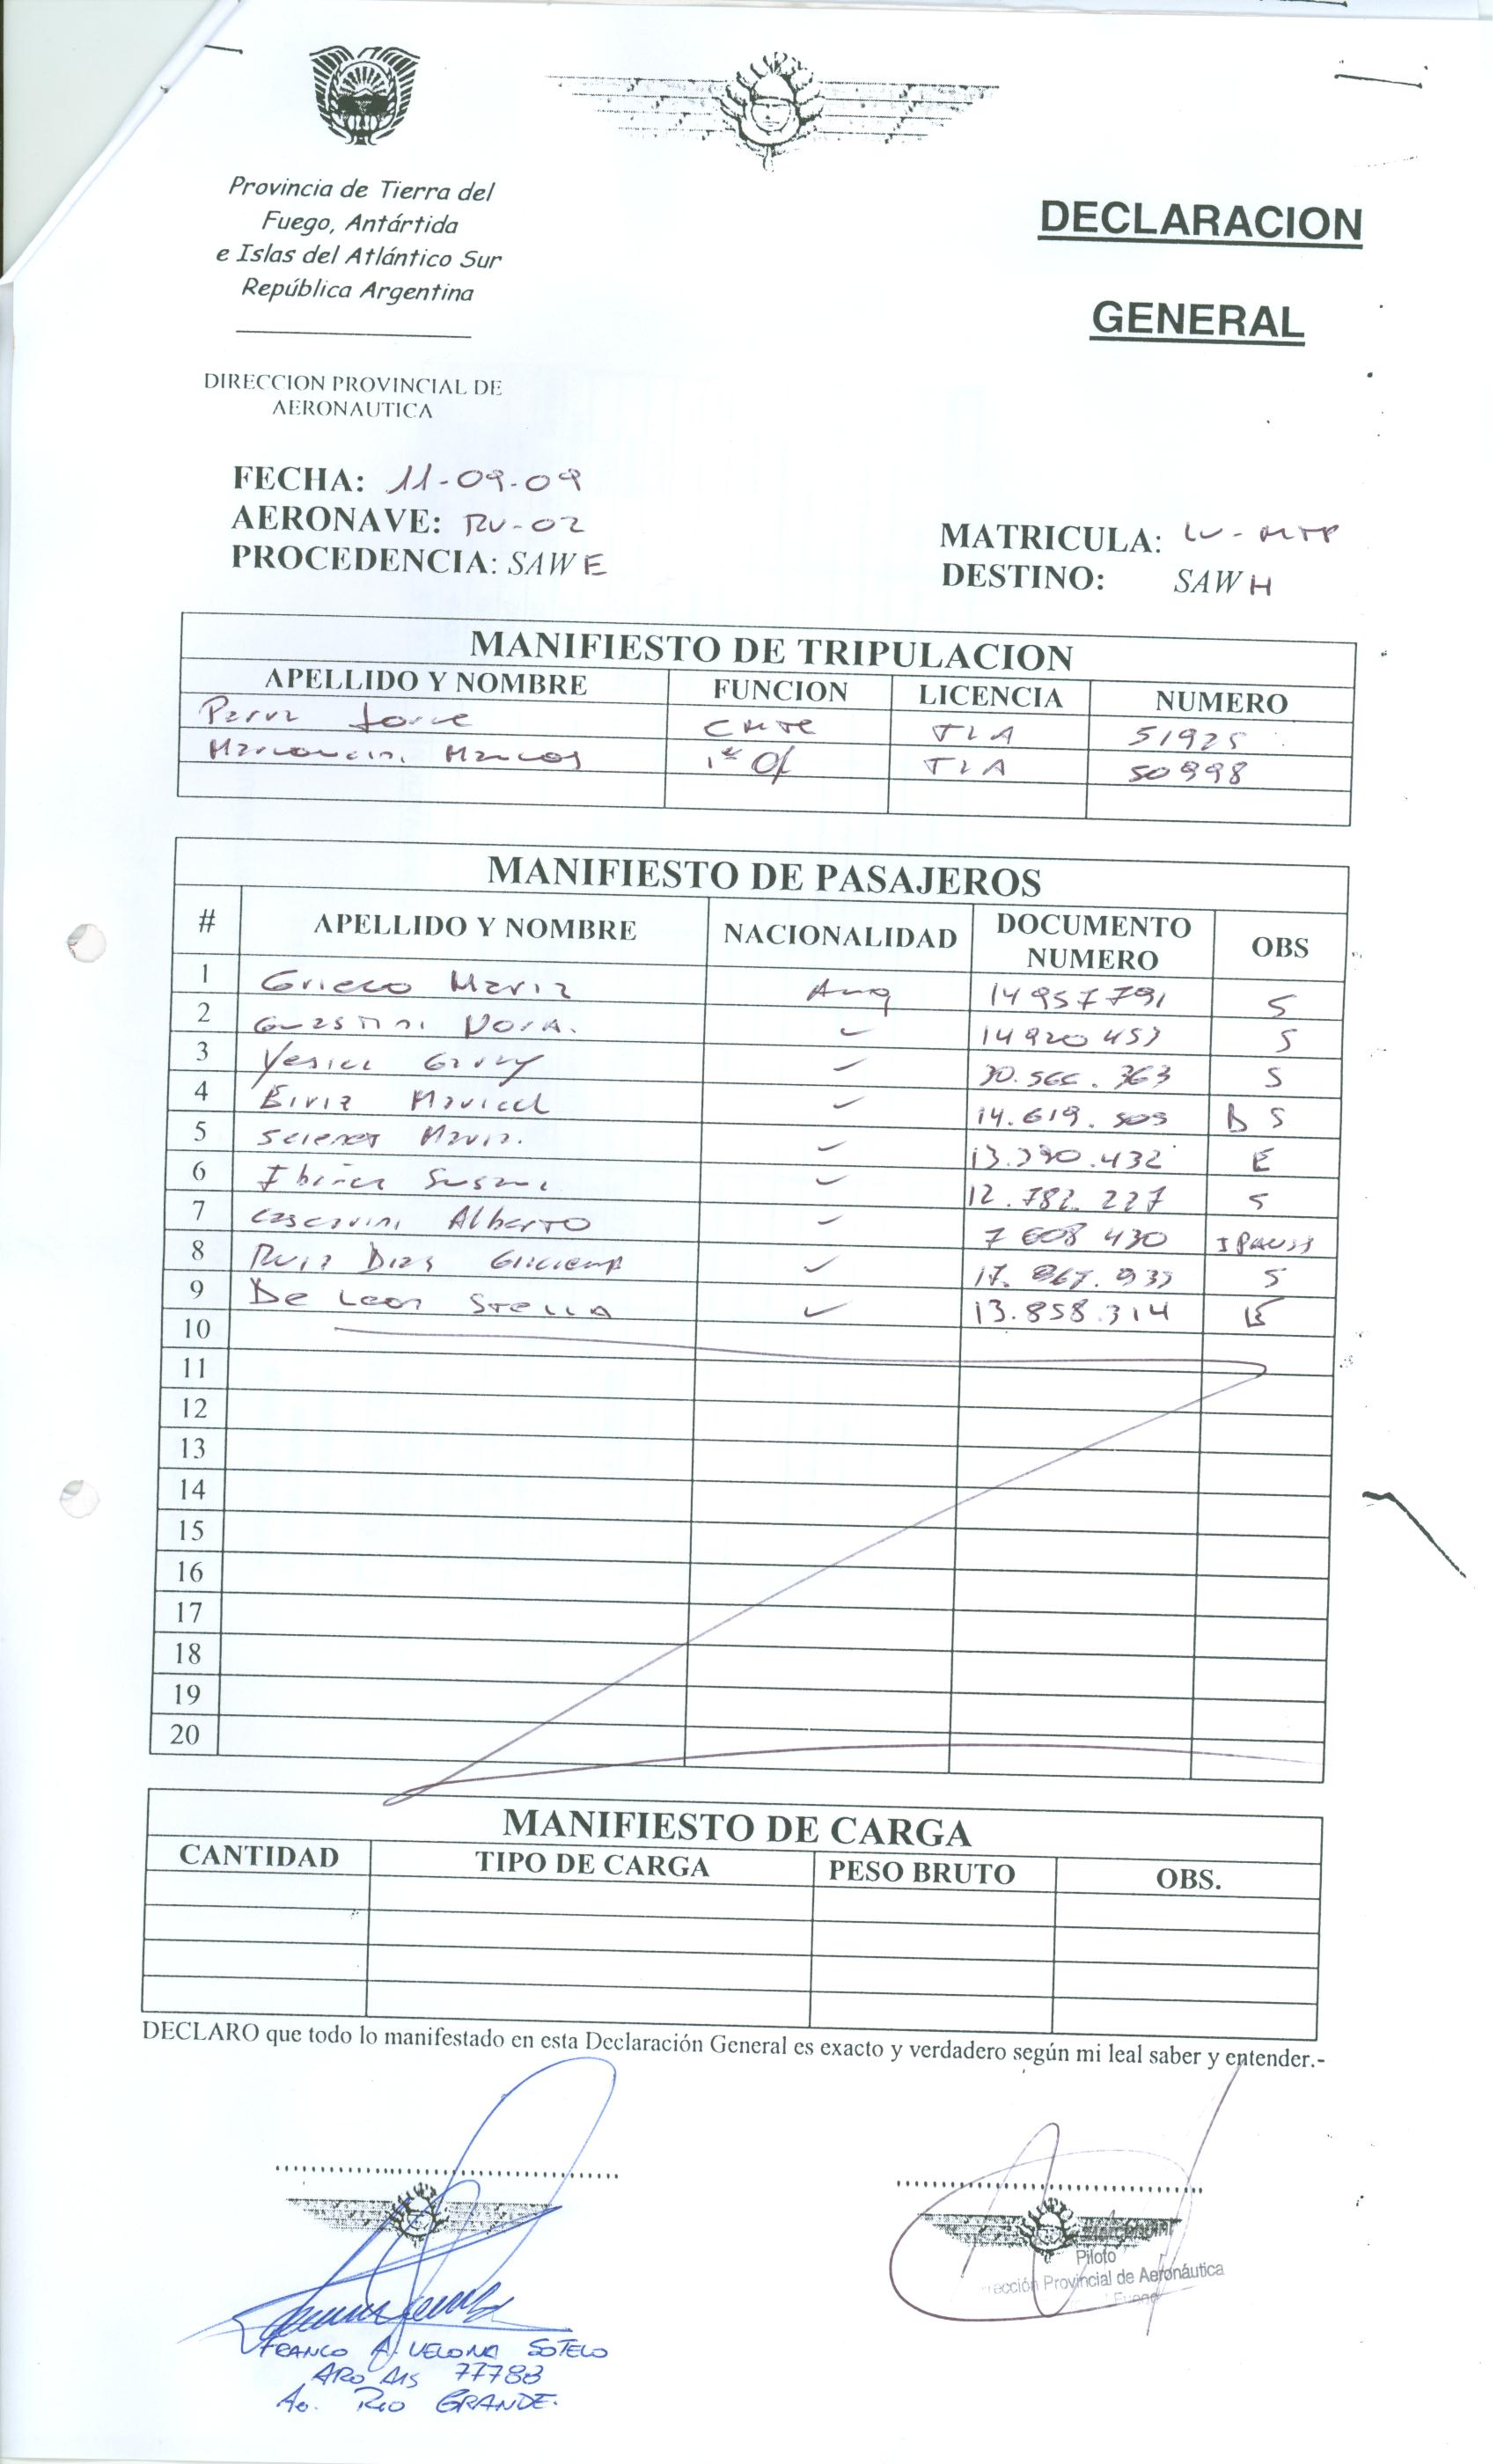 Provincia de Tierra del
Fuego, Antártida
e Islas del Atlántico Sur
República Argentina
DECLARACION
GENERAL
DIRECCION PROVINCIAL DE
AERONAUTICA
FECHA: 11-09-09
AERONAVE: RV-02
PROCEDENCIA: SAWE
MATRICULA: LV-MTP
DESTINO: SAWH
MANIFIESTO DE TRIPULACION
APELLIDO Y NOMBRE FUNCION LICENCIA NUMERO
Jorge CMTE TLA 51925
Marcos 1er Of TLA 50998
MANIFIESTO DE PASAJEROS
# APELLIDO Y NOMBRE NACIONALIDAD DOCUMENTO NUMERO OBS
1 Grieco Maria Arg 14957791 S
2 Guastini Nora. 14920453 S
3 Yesica Garay 30.566.363 S
4 Maricel 14.619.505 B S
5 Maria. 13.390.432 E
6 Ibañez Susana 12.782.227 S
7 Casarini Alberto 7608430 IPAUSS
8 Ruiz Dias 17.867.933 S
9 De Leon Stella 13.858.314 E
10
11
12
13
14
15
16
17
18
19
20
MANIFIESTO DE CARGA
CANTIDAD TIPO DE CARGA PESO BRUTO OBS.
DECLARO que todo lo manifestado en esta Declaración General es exacto y verdadero según mi leal saber y entender.-
Piloto
rección Provincial de Aeronáutica
Fuego
FRANCO A. VELONA SOTELO
ARO AIS 77788
Ao. RIO GRANDE.